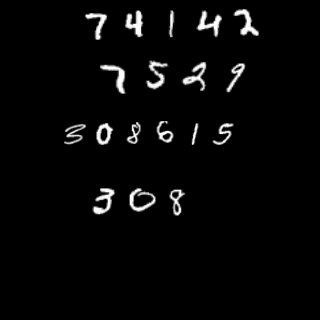 74142
7529
308615
308